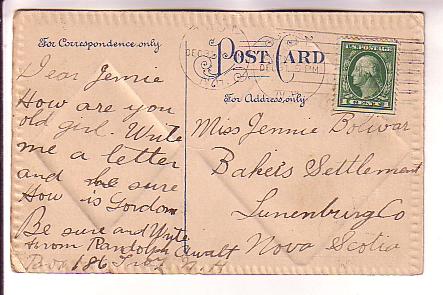 For Correspondence only
POST CARD
For Address only
U.S. POSTAGE
Dear Jennie
How are you
old girl. Write
me a letter
and be sure
How is Gordon
Be sure and Wryte
from Randolph Awalt
Box 186
Miss Jennie Bolivar
Bakers Settlement
Lunenburg Co
Nova Scotia
DEC
PM